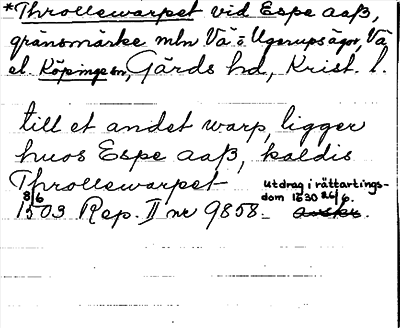 *Throllewarpet vid Espe aaß,
gränsmärke mln Vä o Ugerupsägor, Vä
el. Köpinge sn, Gärds hd, Krist. l.
till et andet warp, ligger
huos Espe aaß, kaldis
Throllewarpet
8/6 1503 Rep. II nr 9858. Utdrag i rättartings-
dom 1630 26/6.